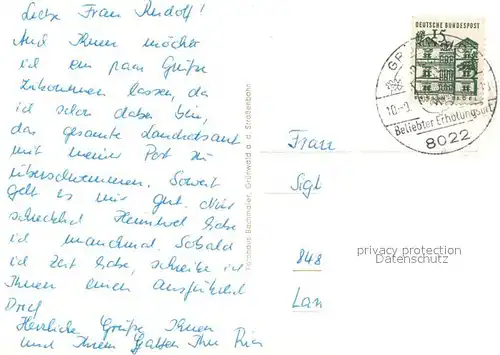 Liebe Frau Rudolf!
Auch Ihnen möchte
ich ein paar Grüße
zukommen lassen, da
ich schon dabei bin,
das gesamte Landratsamt
mit meiner Post zu
überschwemmen. Soweit
geht es mir gut. Nur
schrecklich Heimweh habe
ich manchmal. Sobald
ich Zeit habe, schreibe ich
Ihnen einen ausführlich
Brief
Herzliche Grüße Ihnen
und Ihrem Gatten Ihre
Forsthaus Bachmaier, Grünwald a. d. Straßenbahn
DEUTSCHE BUNDESPOST
15
Beliebter Erholungsort
8022
Frau
Sigl
848
privacy protection
Datenschutz